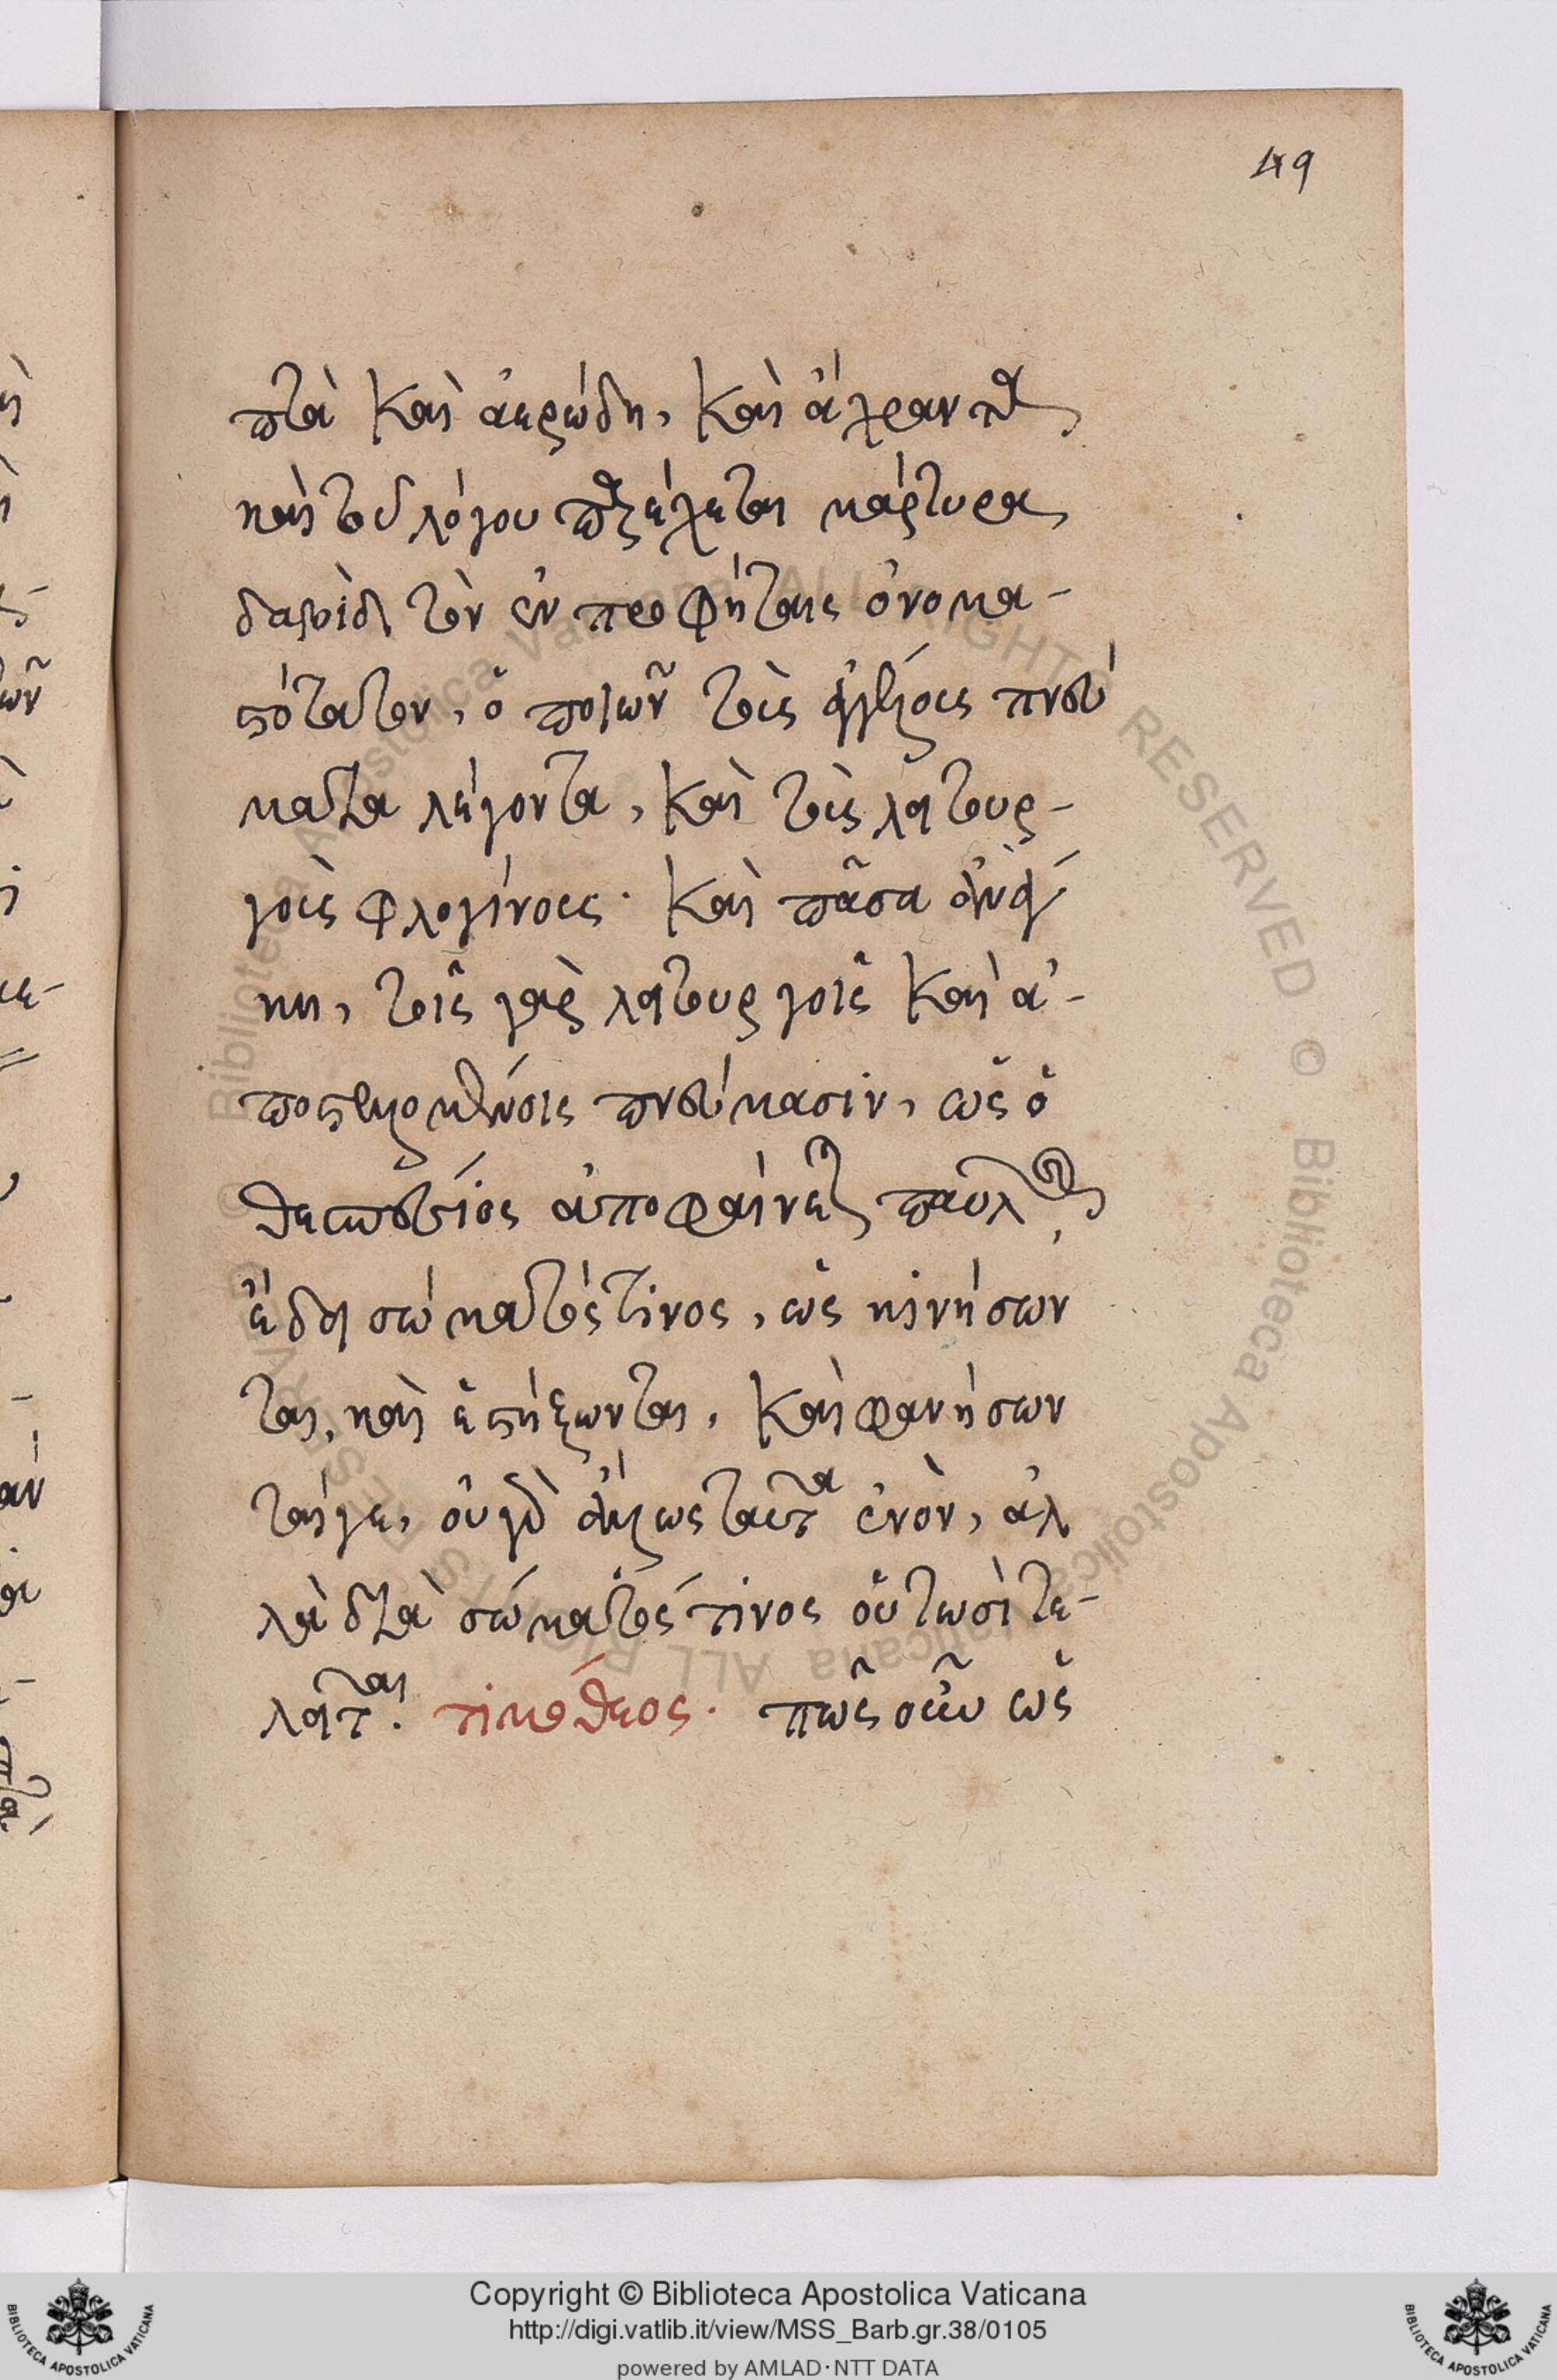 49
πτὰ καὶ ἀερώδη, καὶ ἄχραντα,
καὶ τοῦ λόγου παρέχεται μάρτυρα,
δαυὶδ τὸν ἐν προφήταις ὀνομα-
στότατον, ὁ ποιῶν τοὺς ἀγγέλους πνεύ
ματα λέγοντα, καὶ τοὺς λειτουρ-
γοὺς φλογίνους. καὶ πᾶσα ἀνάγ
κη, τοῖς γὰρ λειτουργοῖς καὶ ἀ-
ποστελλομένοις πνεύμασιν, ὡς ὁ
θεσπέσιος ἀποφαίνεται παῦλος,
ἔδει σώματός τινος, ὡς κινήσων
ται, καὶ στήξωνται, καὶ φανήσων
ταί γε, οὐ γὰρ ἄλλως ταῦτα ἐνὸν, ἀλ
λὰ διὰ σώματός τινος οὑτωσὶ τε-
λεῖται. τιμόθεος. πῶς οὖν ὡς
Copyright © Biblioteca Apostolica Vaticana
http://digi.vatlib.it/view/MSS_Barb.gr.38/0105
powered by AMLAD·NTT DATA